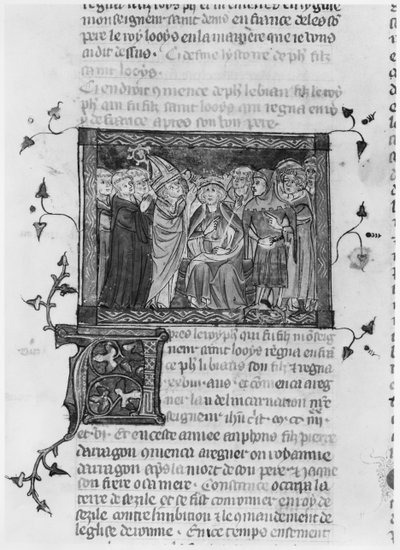 regna lui roys ph et lachevet en legliſe
monſeigneur ſaint denis en france deles ſō
pere le roy looys en la maniere que le roy
au dit deſſus. Ci define lyſtoire de ph filz
ſaint looys.
Ci endroit cōmence de ph le bian filz le roy
ph qui fu filz ſaint looys qui regna en roy
de france apres ſon bon pere.
Apres le roy ph qui fu filz mōſeig
neur ſaint looys regna en frā
ce ph li biaus ſon filz et regna
xxviii. ans. et cōmenca a reg
ner lan de lincarnation nr̄e
ſeigneur ihū criſt. m. cc. iiii
et vi. Et en ceſte annee amphons filz pierre
darragon cōmenca a regner ou roiaume
darragon apꝭs la mort de ſon pere. Et iaque
ſon frere o ſa mere Conſtance occupa la
terre de ſezile et ſe fiſt couronner en roy de
ſezile contre linhibition et le cōmandement de
legliſe de romme. En ce temps enſement